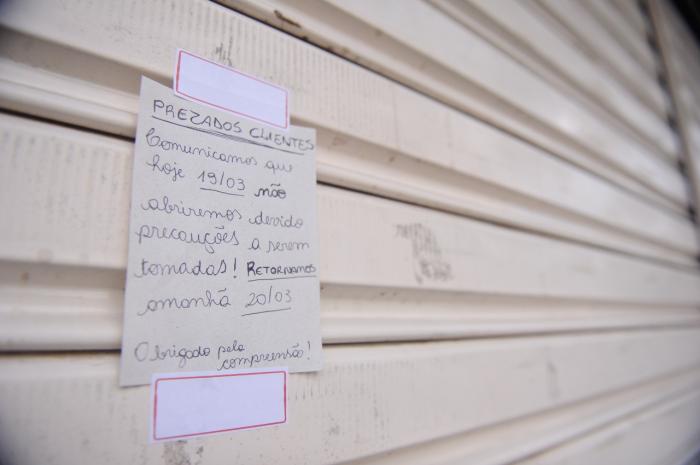 PREZADOS CLIENTES
Comunicamos que
hoje 19/03 não
abriremos devido
precauções a serem
tomadas! RETORNAMOS
amanhã 20/03
Obrigado pela
compreensão!